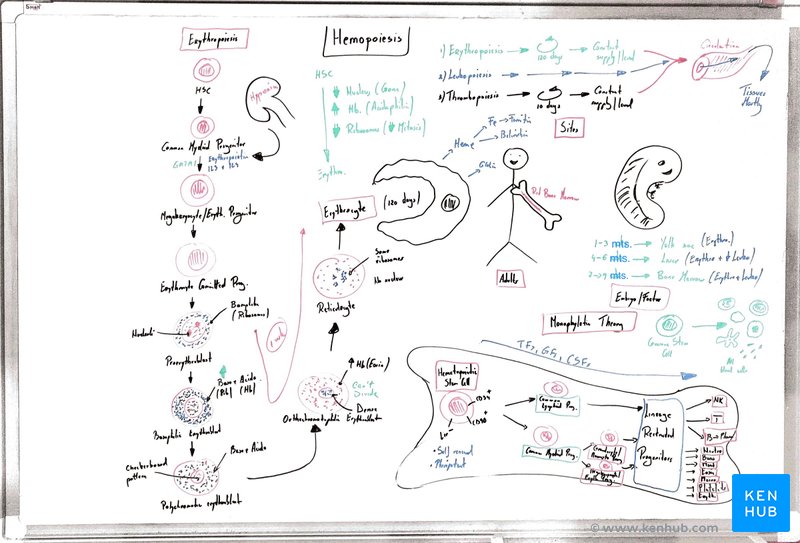 Erythropoiesis
HSC
Common Myeloid Progenitor
GATA1
Erythropoietin
IL3 +
Hypoxia
Megakaryocyte/Eryth. Progenitor
Erythrocyte Committed Prog.
Basophilic
(Ribosomes)
Nucleoli
Proerythroblast
Base + Acido
(Rib) (Hb)
Basophilic erythroblast
Checkerboard
pattern
Base + Acido
Polychromatic erythroblast
1 week
Hemopoiesis
HSC
Nucleus (Gone)
Hb. (Acidophilic)
Ribosomes ( Mitosis)
Erythro.
Erythrocyte
(120 days)
Some
ribosomes
No nucleus
Reticulocyte
Hb (Eosin)
Can't
Divide
Dense
Orthochromatophilic Erythroblast
1) Erythropoiesis
120 days
Constant
supply/level
2) Leukopoiesis
3) Thrombopoiesis
10 days
Constant
supply/level
Circulation
Tissues
Mostly
Heme
Fe
Ferritin
Bilirubin
Globin
Sites
Red Bone Marrow
Adults
1-3 mts. Yolk sac (Erythro.)
4-6 mts. Liver (Erythro + Leuko)
7-9 mts. Bone Marrow (Erythro + Leuko)
Embryo/Foetus
Monophyletic Theory
Common Stem
Cell
All
blood cells
TFs, GFs, CSFs
Hematopoietic
Stem Cell
CD34+
• Self renewal
• Pluripotent
Common Lymphoid Prog.
Common Myeloid Prog.
Lineage
Restricted
Progenitors
NK
T
B → Plasma
Neutro
Baso
Eosin
Platelets
Eryth
KEN
HUB
© www.kenhub.com